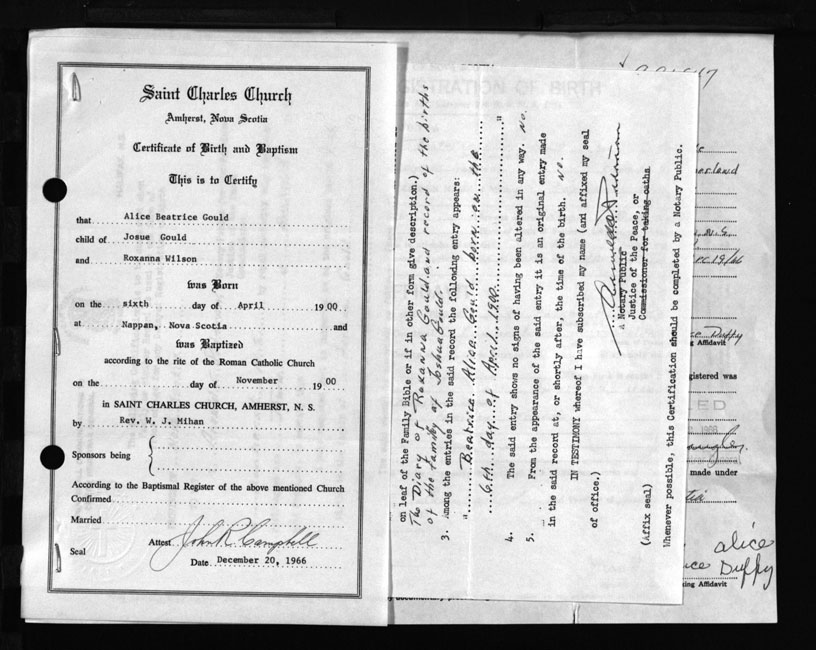 Saint Charles Church
Amherst, Nova Scotia
Certificate of Birth and Baptism
This is to Certify
that Alice Beatrice Gould
child of Josue Gould
and Roxanna Wilson
was Born
on the sixth day of April 1900
at Nappan, Nova Scotia and
was Baptized
according to the rite of the Roman Catholic Church
on the day of November 1900
in SAINT CHARLES CHURCH, AMHERST, N. S.
by Rev. W. J. Mihan
Sponsors being
According to the Baptismal Register of the above mentioned Church
Confirmed
Married
Attest John R Campbell
Seal
Date December 20, 1966
on leaf of the Family Bible or if in other form give description.)
The Diary of Roxanna Gould and record of the births
of the family of Joshua Gould.
3. Among the entries in the said record the following entry appears:
"Beatrice Alice Gould born on the
6th day of April 1900"
4. The said entry shows no signs of having been altered in any way. No.
5. From the appearance of the said entry it is an original entry made
in the said record at, or shortly after, the time of the birth. No.
IN TESTIMONY whereof I have subscribed my name (and affixed my seal
of office.)
a Notary Public
Justice of the Peace, or
Commissioner for taking oaths
(Affix seal)
Whenever possible, this Certification should be completed by a Notary Public.
REGISTRATION OF BIRTH
N.S.
Duffy
ng Affidavit
gistered was
made under
Alice
Duffy
king Affidavit